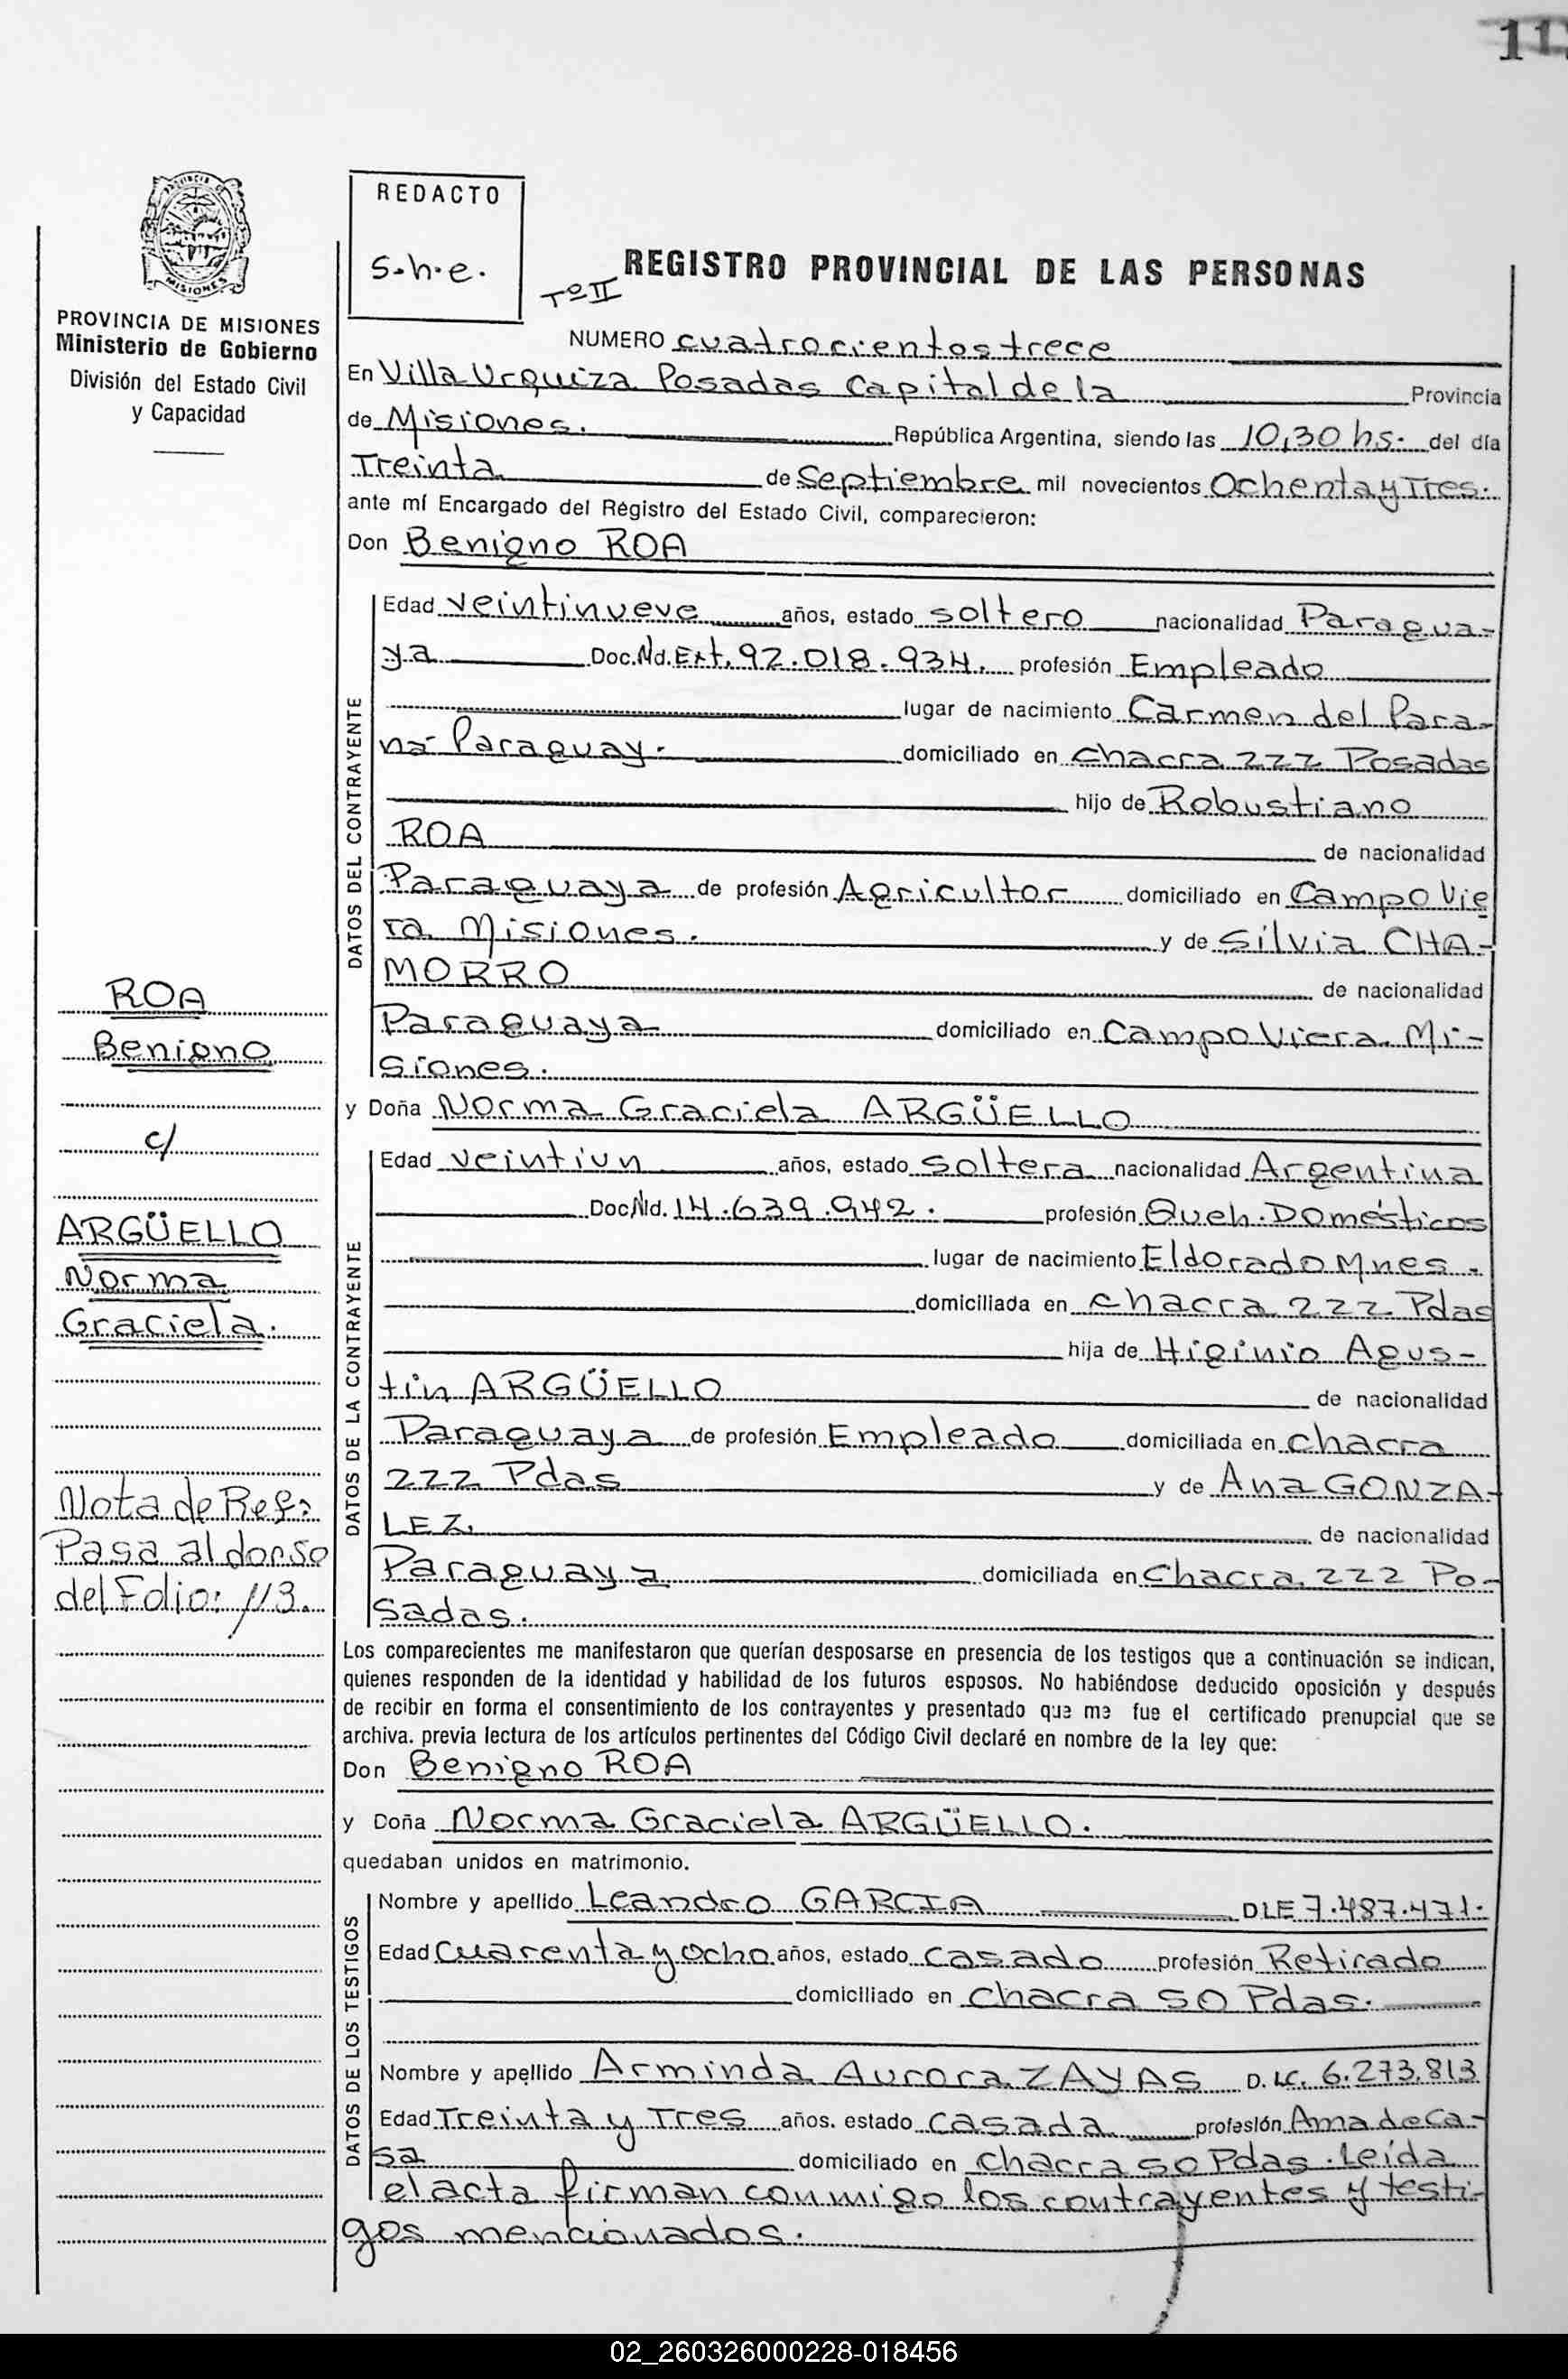 11
REDACTO
S.h.e.
MISIONES
PROVINCIA DE MISIONES
Ministerio de Gobierno
División del Estado Civil
y Capacidad
Tº II
REGISTRO PROVINCIAL DE LAS PERSONAS
NUMERO cuatrocientos trece
En Villa Urquiza Posadas Capital de la Provincia
de Misiones. República Argentina, siendo las 10,30 hs. del día
Treinta de Septiembre mil novecientos Ochenta y Tres.
ante mí Encargado del Registro del Estado Civil, comparecieron:
Don Benigno ROA
DATOS DEL CONTRAYENTE
Edad veintinueve años, estado soltero nacionalidad Paragua-
ya Doc.Nd.Ext. 92.018.934. profesión Empleado
lugar de nacimiento Carmen del Para-
ná Paraguay. domiciliado en chacra 222 Posadas
hijo de Robustiano
ROA de nacionalidad
Paraguaya de profesión Agricultor domiciliado en Campo Vie
ra Misiones. y de Silvia CHA-
MORRO de nacionalidad
Paraguaya domiciliado en Campo Viera. Mi-
siones.
y Doña Norma Graciela ARGÜELLO
DATOS DE LA CONTRAYENTE
Edad veintiun años, estado soltera nacionalidad Argentina
Doc.Nd. 14.639.942. profesión Queh. Domésticos
lugar de nacimiento Eldorado Mnes.
domiciliada en chacra 222 Pdas
hija de Higinio Agus-
tín ARGÜELLO de nacionalidad
Paraguaya de profesión Empleado domiciliada en chacra
222 Pdas y de Ana GONZA-
LEZ. de nacionalidad
Paraguaya domiciliada en Chacra 222 Po-
sadas.
ROA
Benigno
c/
ARGÜELLO
Norma
Graciela.
Nota de Ref:
Pasa al dorso
del Folio: 113.
Los comparecientes me manifestaron que querían desposarse en presencia de los testigos que a continuación se indican,
quienes responden de la identidad y habilidad de los futuros esposos. No habiéndose deducido oposición y después
de recibir en forma el consentimiento de los contrayentes y presentado que me fue el certificado prenupcial que se
archiva. previa lectura de los artículos pertinentes del Código Civil declaré en nombre de la ley que:
Don Benigno ROA
y Doña Norma Graciela ARGÜELLO.
quedaban unidos en matrimonio.
DATOS DE LOS TESTIGOS
Nombre y apellido Leandro GARCIA DLE 7.487.471.
Edad cuarenta y ocho años, estado casado profesión Retirado
domiciliado en chacra 50 Pdas.
Nombre y apellido Arminda Aurora ZAYAS D. LC. 6.273.813
Edad Treinta y Tres años. estado casada profesión Ama de Ca-
sa domiciliado en chacra 50 Pdas. Leída
el acta firman conmigo los contrayentes y testi-
gos mencionados.
02_260326000228-018456